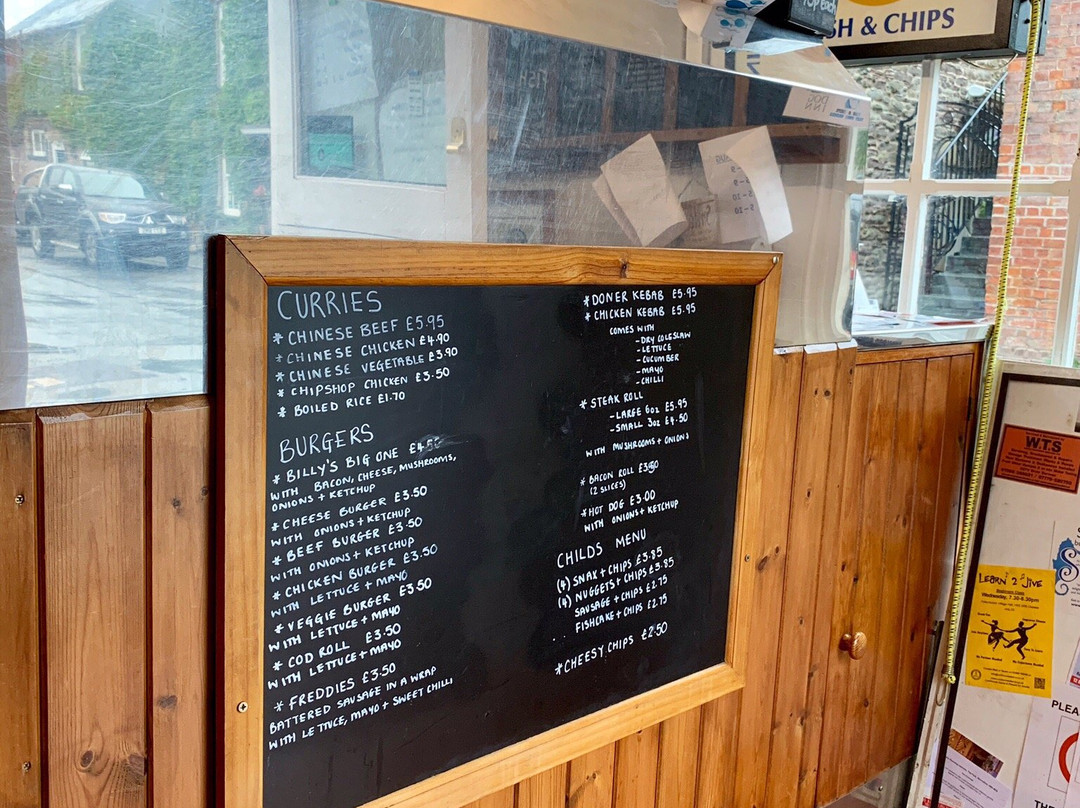 CURRIES
* CHINESE BEEF £5.95
* CHINESE CHICKEN £4.90
* CHINESE VEGETABLE £3.90
* CHIPSHOP CHICKEN £3.50
* BOILED RICE £1.70
BURGERS
* BILLY'S BIG ONE £4.50
WITH BACON, CHEESE, MUSHROOMS,
ONIONS + KETCHUP
* CHEESE BURGER £3.50
WITH ONIONS + KETCHUP
* BEEF BURGER £3.50
WITH ONIONS + KETCHUP
* CHICKEN BURGER £3.50
WITH LETTUCE + MAYO
* VEGGIE BURGER £3.50
WITH LETTUCE + MAYO
* COD ROLL £3.50
WITH LETTUCE + MAYO
* FREDDIES £3.50
BATTERED SAUSAGE IN A WRAP
WITH LETTUCE, MAYO + SWEET CHILLI
* DONER KEBAB £5.95
* CHICKEN KEBAB £5.95
COMES WITH
- DRY COLESLAW
- LETTUCE
- CUCUMBER
- MAYO
- CHILLI
* STEAK ROLL
- LARGE 6oz £5.95
- SMALL 3oz £4.50
WITH MUSHROOMS + ONIONS
* BACON ROLL £3.50
(2 SLICES)
* HOT DOG £3.00
WITH ONIONS + KETCHUP
CHILDS MENU
(4) SNAX + CHIPS £3.85
(4) NUGGETS + CHIPS £3.85
SAUSAGE + CHIPS £2.75
FISHCAKE + CHIPS £2.75
* CHEESY CHIPS £2.50
SH & CHIPS
W.T.S
LEARN 2 JIVE
PLEA
THE